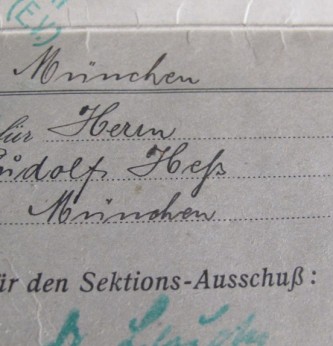 (E.V.)
München
für Herrn
Rudolf Heß
München
für den Sektions-Ausschuß: